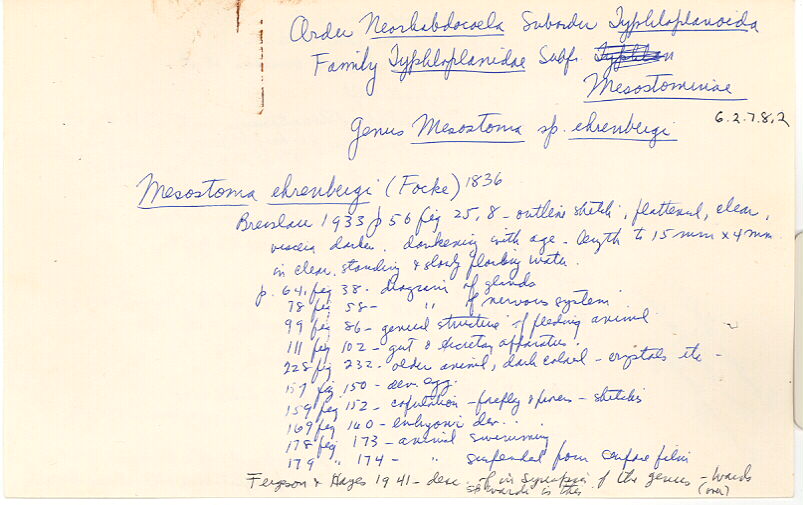 Order Neorhabdocoela Suborder Typhloplanoida
Family Typhloplanidae Subf.
Mesostominae
6.2.7.8.2
Genus Mesostoma sp. ehrenbergi
Mesostoma ehrenbergi (Focke) 1836
Bresslau 1933 p 56 fig 25, 8 - outline sketch, flattened, clear,
viscera darker. darkening with age - length to 15 mm x 4 mm
in clear, standing & slowly flowing water.
p. 64, fig 38 - diagram of glands
78 fig 58 - " of nervous system
99 fig 86 - general structure of feeding animal
111 fig 102 - gut & excretory apparatus.
228 fig 232 - older animal, dark colored - crystals etc -
157 fig 150 - dev. egg.
159 fig 152 - copulation - sketches
169 fig 160 - embryonic dev. . .
178 fig 173 - animal swimming
179 " 174 - " suspended from surface film
Ferguson & Hayes 1941 - desc. of in Synopsis of the genus - Wards
(over)